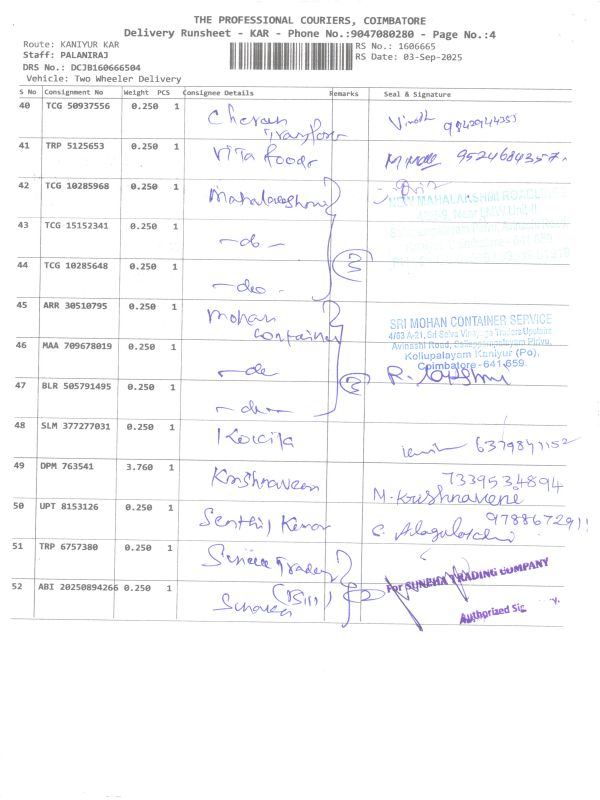 THE PROFESSIONAL COURIERS, COIMBATORE
Delivery Runsheet - KAR - Phone No.:9047080280 - Page No.:4
Route: KANIYUR KAR
RS No.: 1606665
Staff: PALANIRAJ
RS Date: 03-Sep-2025
DRS No.: DCJB160666504
Vehicle: Two Wheeler Delivery
S No Consignment No Weight PCS Consignee Details Remarks Seal & Signature
40 TCG 50937556 0.250 1 Cheran
41 TRP 5125653 0.250 1 Vita Foods 9524684357
42 TCG 10285968 0.250 1
43 TCG 15152341 0.250 1 -do-
44 TCG 10285648 0.250 1 -do- 3
45 ARR 30510795 0.250 1 Mohan Container
SRI MOHAN CONTAINER SERVICE
46 MAA 709678019 0.250 1 -do-
Kollupalayam Kaniyur (Po),
Coimbatore - 641 659.
47 BLR 505791495 0.250 1 -do- 3
48 SLM 377277031 0.250 1 6379841152
49 DPM 763541 3.760 1 Krishnaveni 7339534894
M. Krishnaveni
50 UPT 8153126 0.250 1 Senthil Kumar 9788672911
51 TRP 6757380 0.250 1
For SUNEHA TRADING COMPANY
52 ABI 20250894266 0.250 1
Authorized Sig